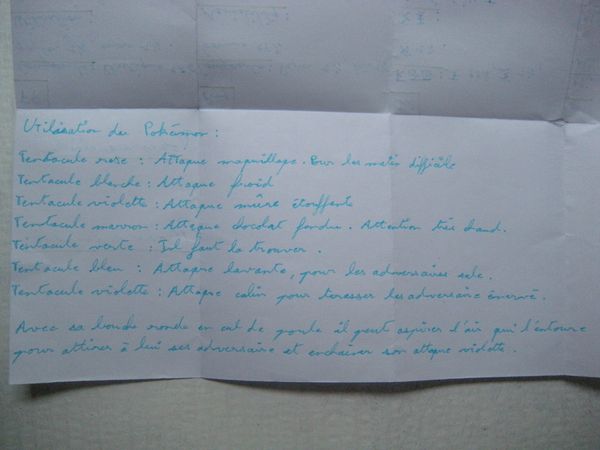 Utilisation du Pokémon :
Tentacule rose : Attaque maquillage. Pour les matés difficile
Tentacule blanche : Attaque froid
Tentacule violette : Attaque mûre étouffante
Tentacule marron : Attaque chocolat fondu. Attention très chaud.
Tentacule verte : Il faut la trouver.
Tentacule bleu : Attaque lavante, pour les adversaires sale.
Tentacule violette : Attaque calin pour terasser les adversaire énervé.
Avec sa bouche ronde en cul de poule il peut aspirer l'air qui l'entoure
pour attirer à lui ses adversaire et enchainer son attaque violette.